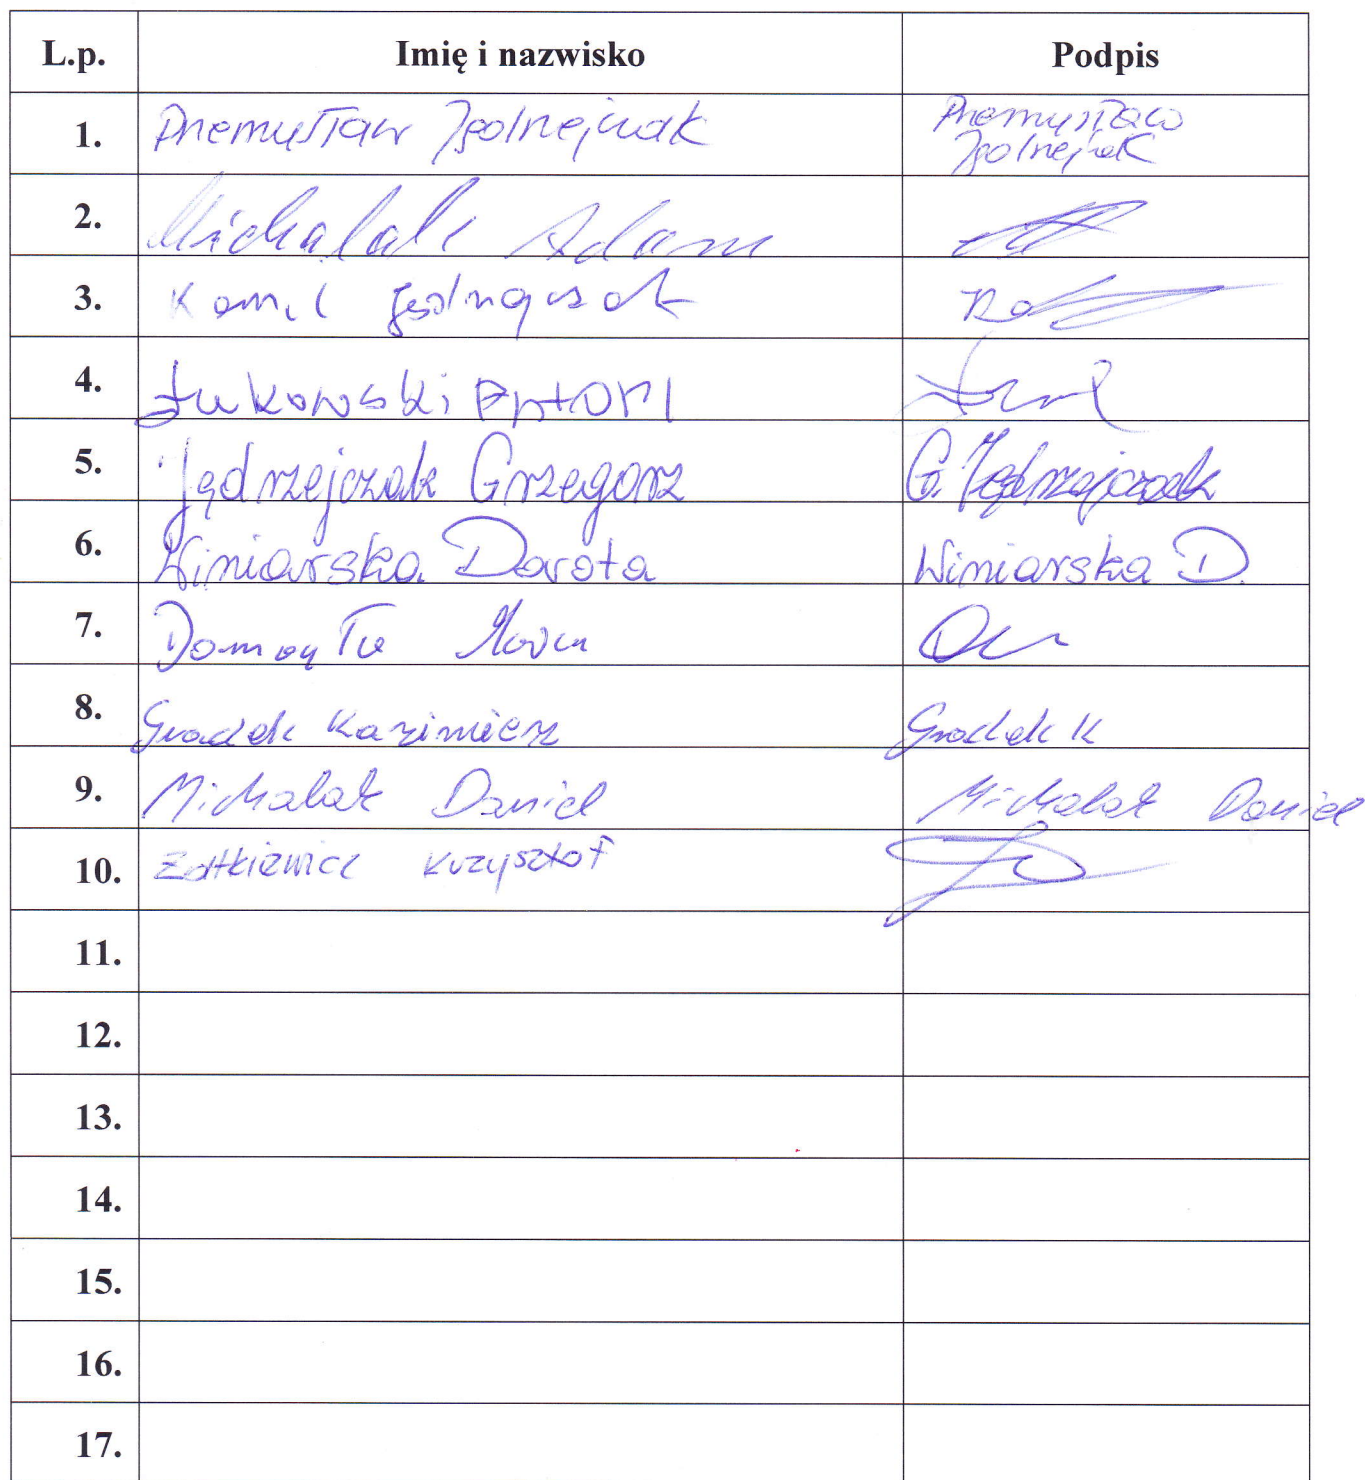 L.p. Imię i nazwisko Podpis
1. Przemysław Jędrzejczak Przemysław
Jędrzejczak
2. Michalak Adam
3. Kamil Jędrzejczak
4. Łukowski Antoni
5. Jędrzejczak Grzegorz G. Jędrzejczak
6. Winiarska Dorota Winiarska D.
7.
8. Gradek Kazimierz Gradek K
9. Michalak Daniel Michalak Daniel
10. Żółtkiewicz Krzysztof
11.
12.
13.
14.
15.
16.
17.